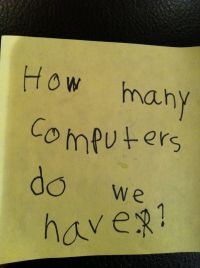 How many
computers
do we
have?